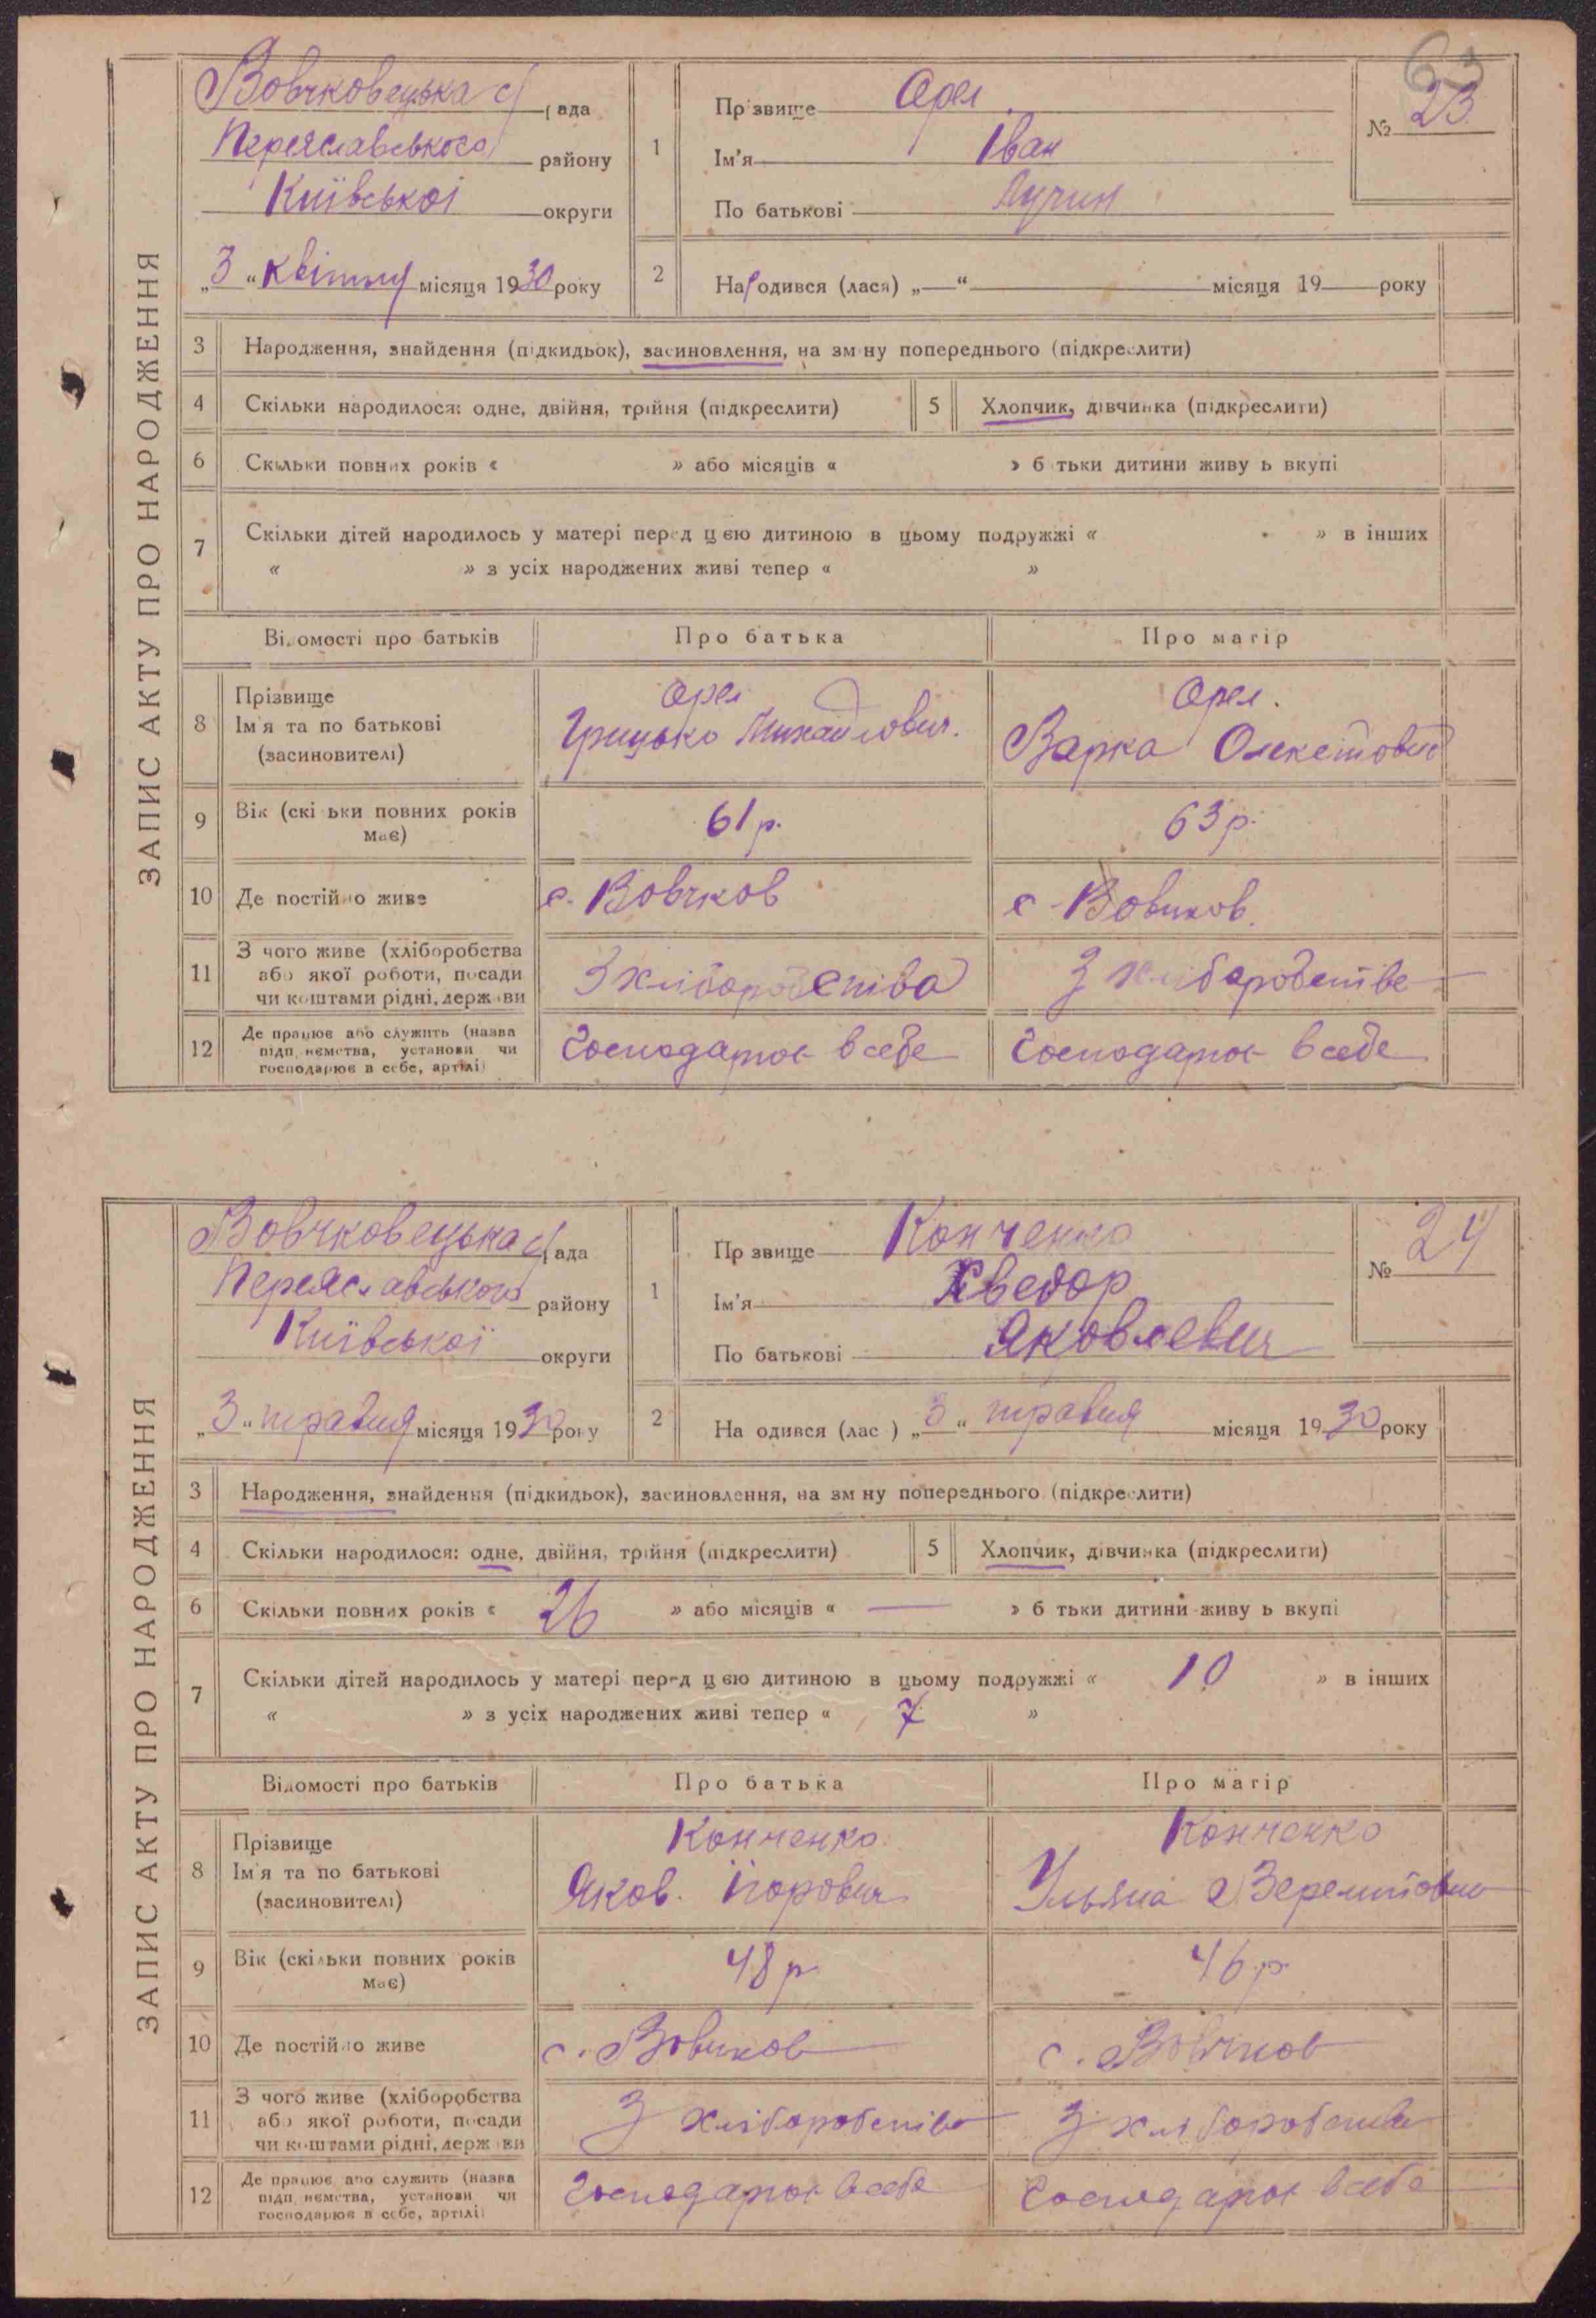 63
Вовчковецька с/рада
Переяславського району
Київської округи
„3“ квітня місяця 1930 року
1
Прізвище Орел
Ім'я Іван
По батькові
№ 23
2
Народився (лася) „—“ місяця 19 року
ЗАПИС АКТУ ПРО НАРОДЖЕННЯ
3 Народження, знайдення (підкидьок), засиновлення, на зміну попереднього (підкреслити)
4 Скільки народилося: одне, двійня, трійня (підкреслити)
5 Хлопчик, дівчинка (підкреслити)
6 Скільки повних років « » або місяців « » батьки дитини живуть вкупі
7 Скільки дітей народилось у матері перед цією дитиною в цьому подружжі « » в інших
« » з усіх народжених живі тепер « »
Відомості про батьків Про батька Про матір
8 Прізвище
Ім'я та по батькові
(засиновителі)
Орел
Грицько Михайлович.
Орел.
Варка
9 Вік (скільки повних років
має)
61 р.
63 р.
10 Де постійно живе
с. Вовчков
с. Вовчков.
11 З чого живе (хліборобства
або якої роботи, посади
чи коштами рідні, держави
З хліборобства
З хліборобства
12 Де працює або служить (назва
підприємства, установи чи
господарює в себе, артілі)
Господарює в себе
Господарює в себе
Вовчковецька с/рада
Переяславського району
Київської округи
„3“ травня місяця 1930 року
1
Прізвище Конченко
Ім'я Хведор
По батькові Яковлевич
№ 24
2
Народився (лась) „3“ травня місяця 1930 року
ЗАПИС АКТУ ПРО НАРОДЖЕННЯ
3 Народження, знайдення (підкидьок), засиновлення, на зміну попереднього (підкреслити)
4 Скільки народилося: одне, двійня, трійня (підкреслити)
5 Хлопчик, дівчинка (підкреслити)
6 Скільки повних років « 26 » або місяців « — » батьки дитини живуть вкупі
7 Скільки дітей народилось у матері перед цією дитиною в цьому подружжі « 10 » в інших
« » з усіх народжених живі тепер « 7 »
Відомості про батьків Про батька Про матір
8 Прізвище
Ім'я та по батькові
(засиновителі)
Конченко
Яков
Конченко
Ульяна
9 Вік (скільки повних років
має)
48 р
46 р
10 Де постійно живе
с. Вовчков
с. Вовчков
11 З чого живе (хліборобства
або якої роботи, посади
чи коштами рідні, держави
З хліборобства
З хліборобства
12 Де працює або служить (назва
підприємства, установи чи
господарює в себе, артілі)
Господарює в себе
Господарює в себе